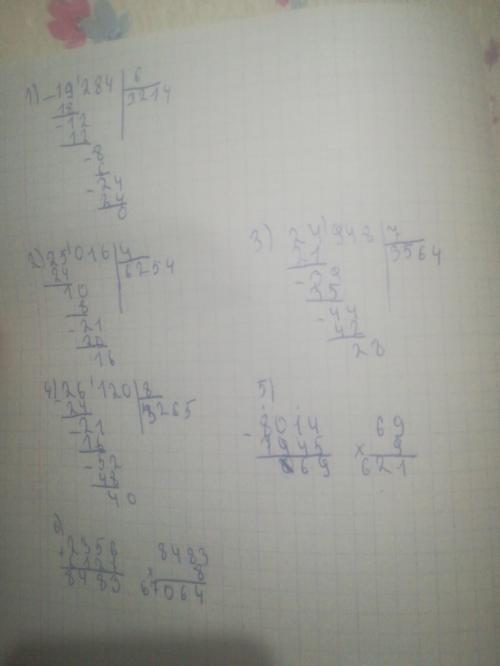 1) -19'284 | 6
18 3214
-12
12
-8
6
-24
24
0
2) 25'016 | 4
24 6254
10
8
-21
20
16
3) 24'948 | 7
21 3564
-39
35
-44
42
28
4) -26'120 | 8
24 3265
-21
16
-52
48
40
5)
-8014 69
7945 × 9
69 621
6)
+2356 8483
× 8
8483 67064